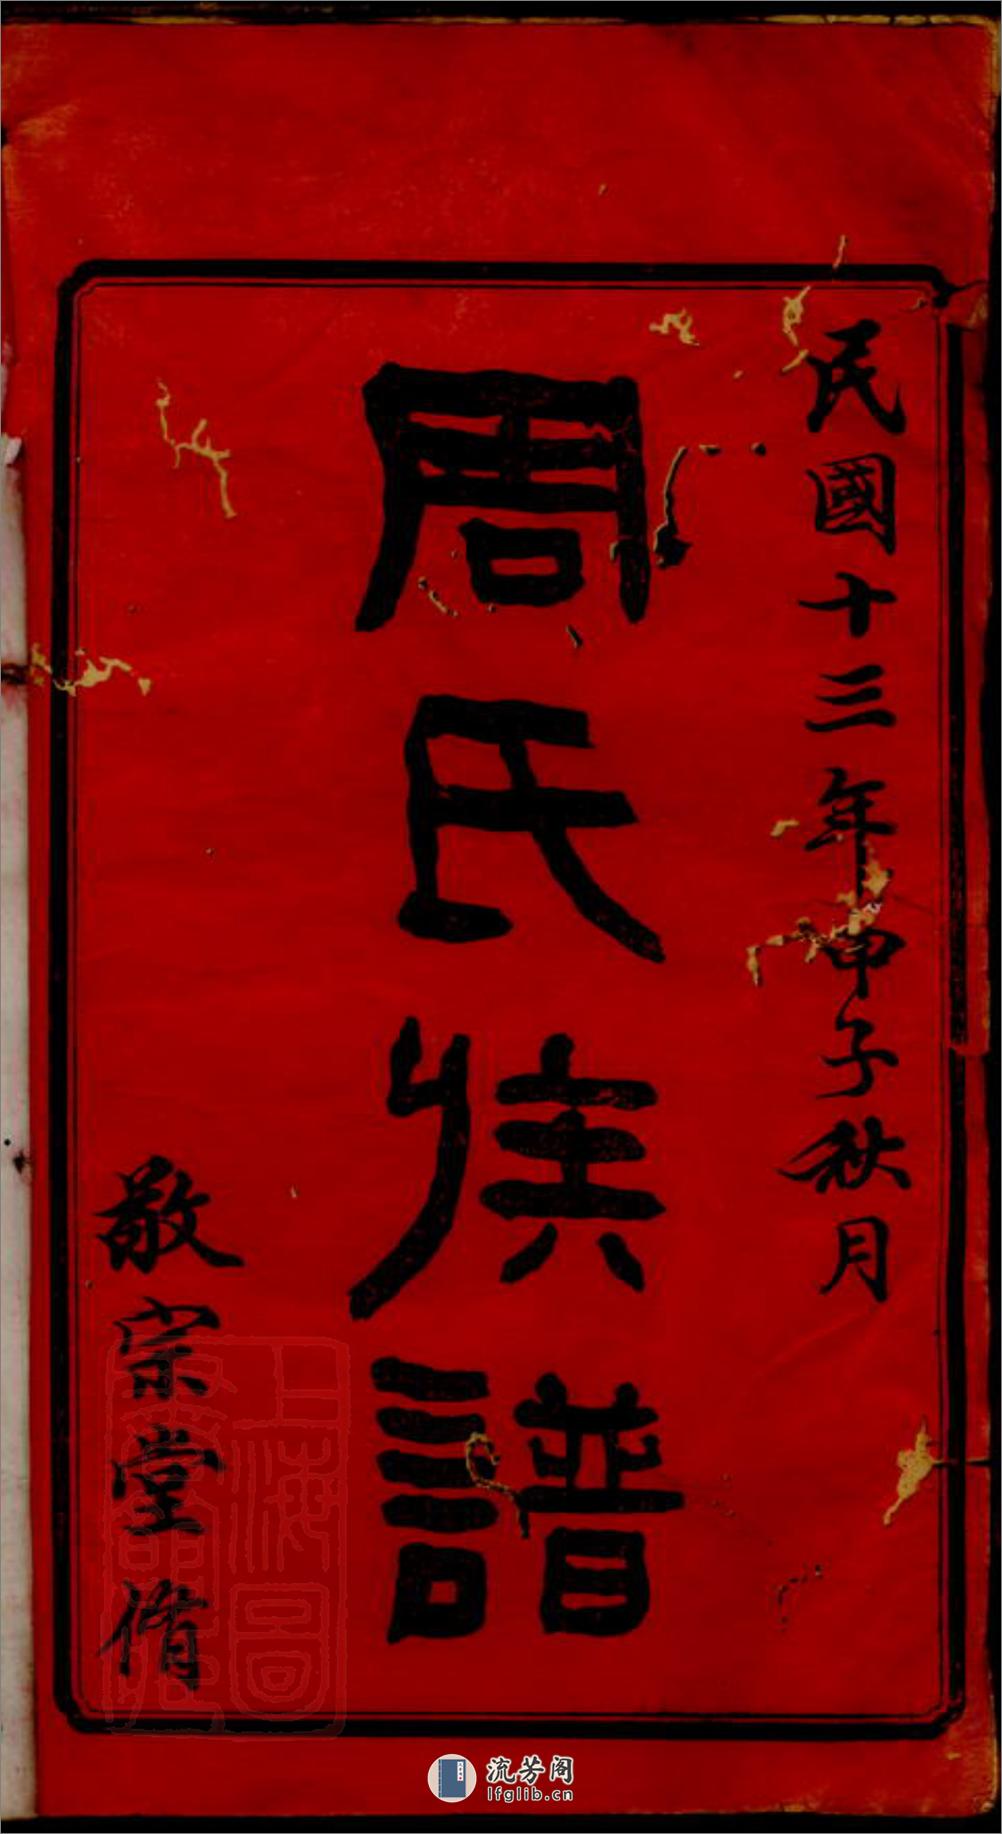 民國十三年甲子秋月
周氏族譜
敬宗堂脩
上海圖
流芳阁
lfglib.cn